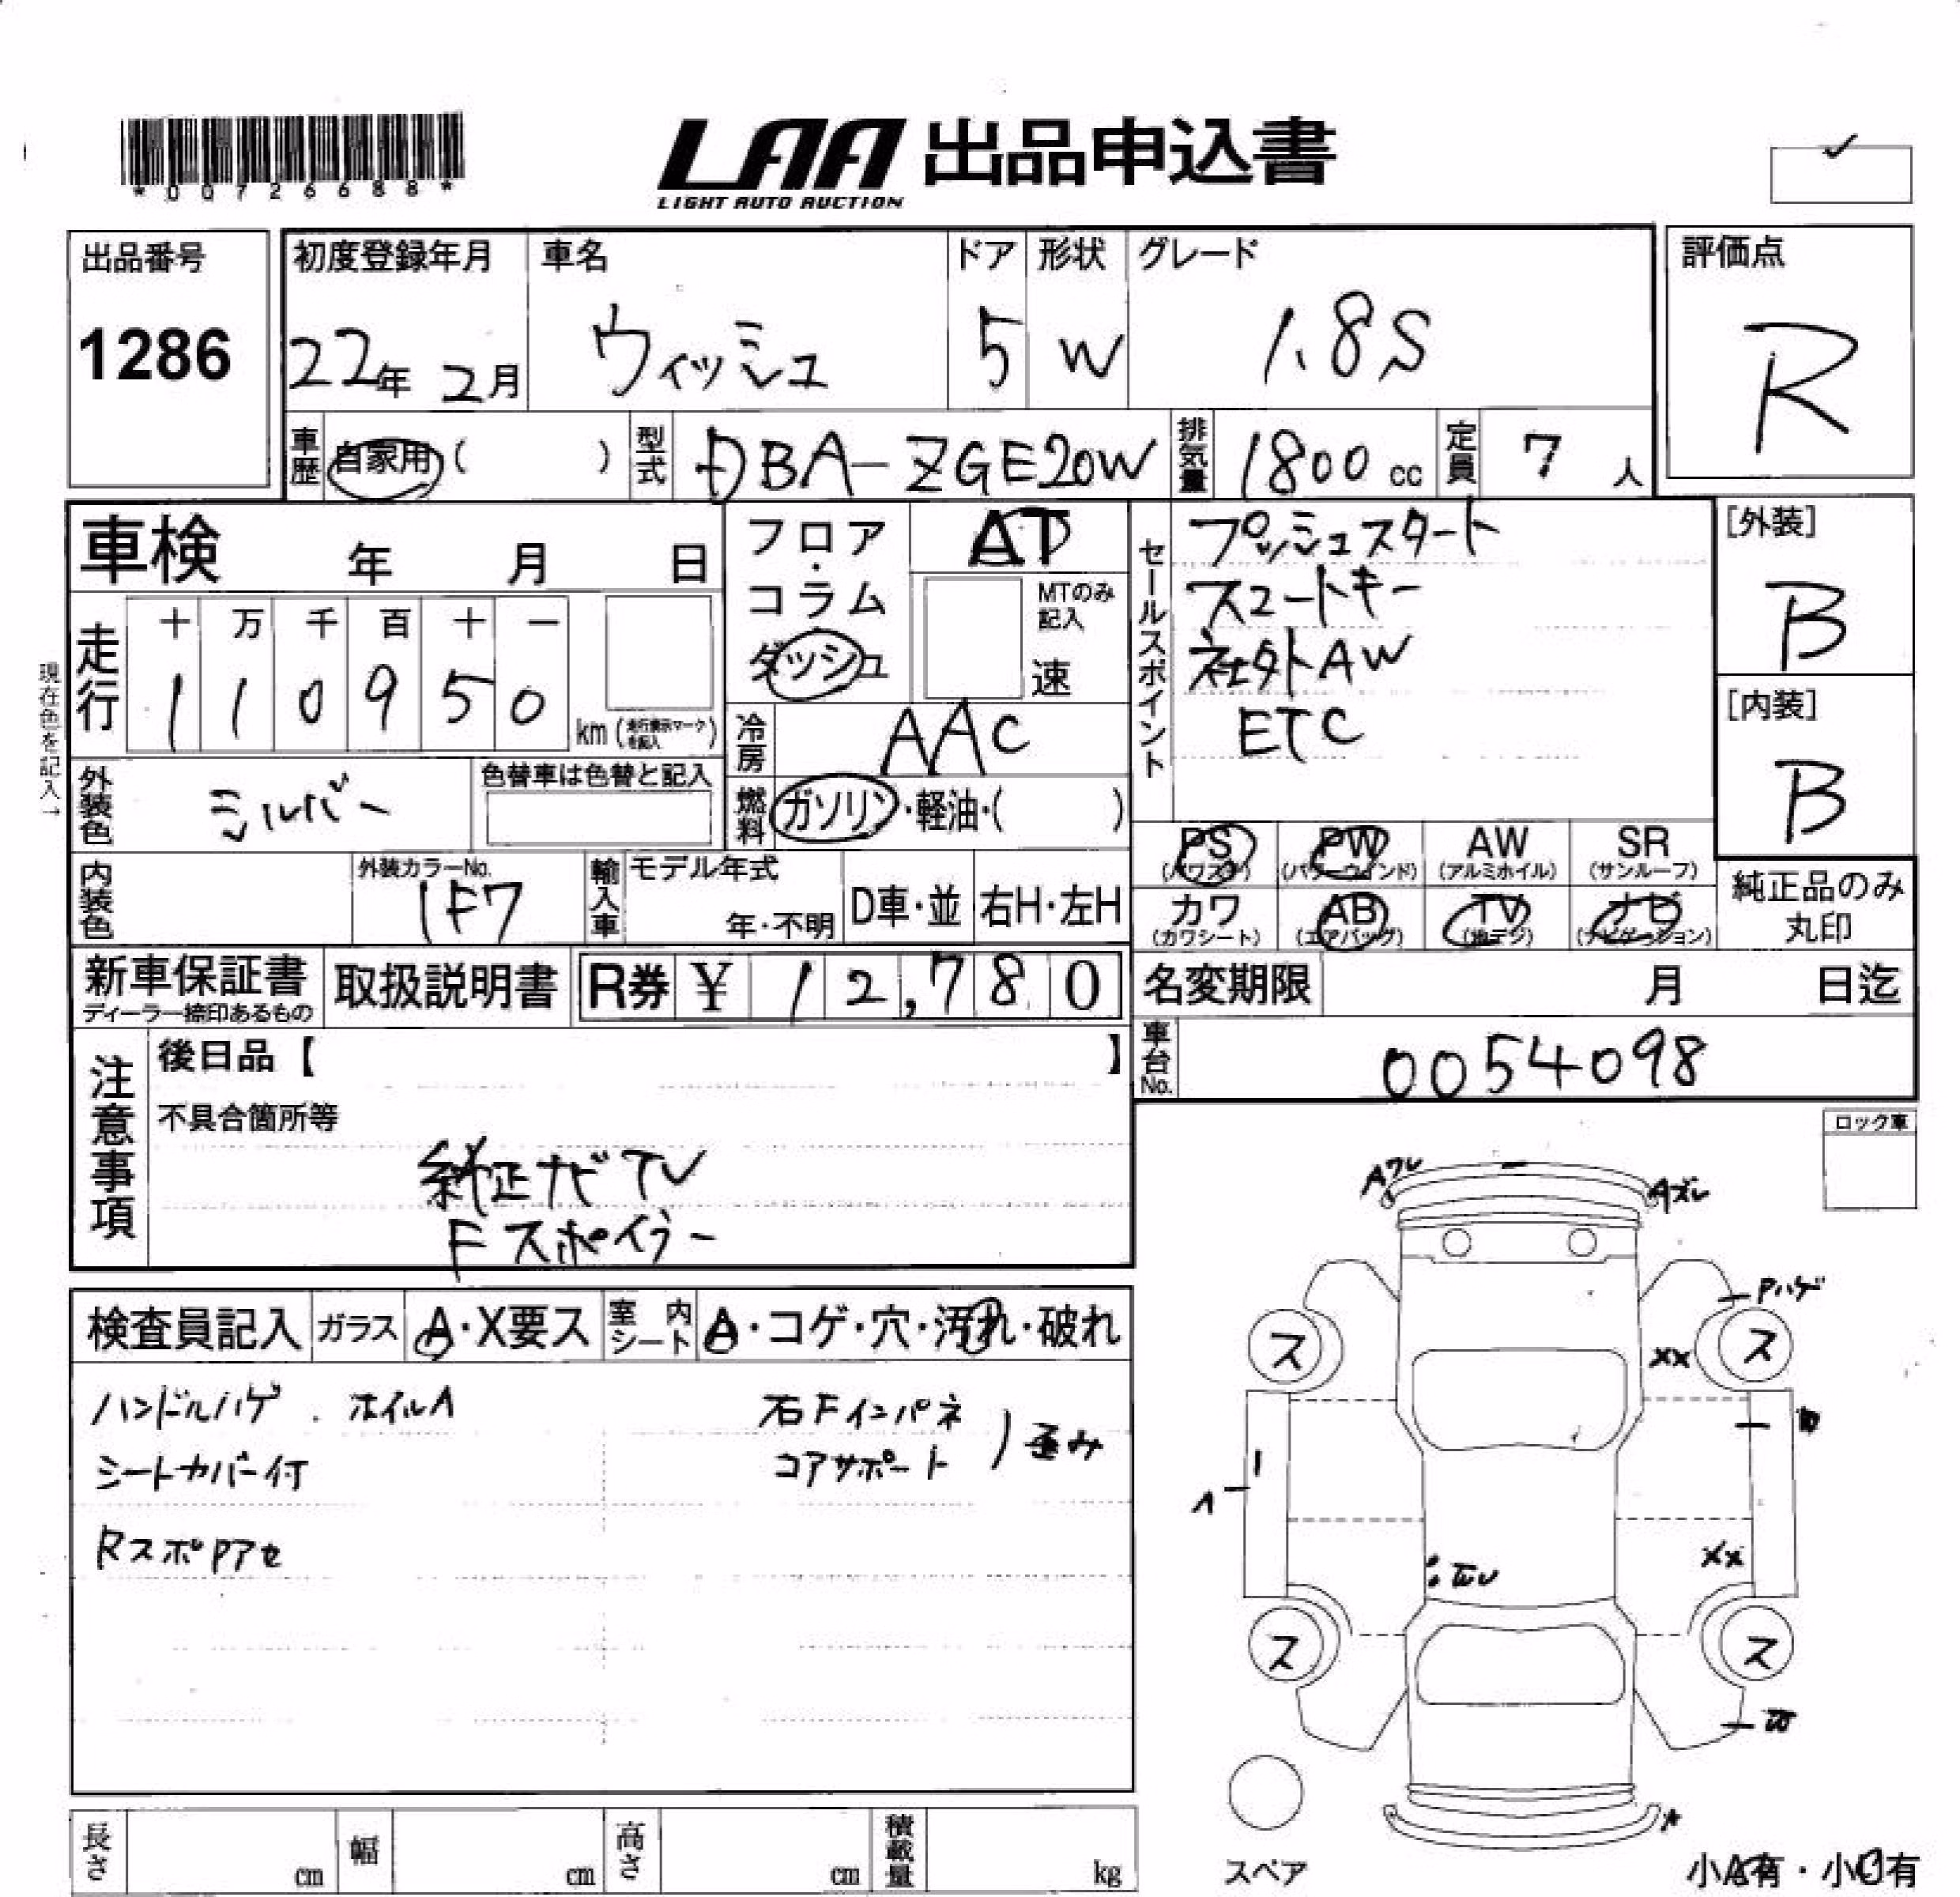 *00726688*
LAA 出品申込書
LIGHT AUTO AUCTION
出品番号
1286
初度登録年月
22年 2月
車名
ウィッシュ
ドア
5
形状
W
グレード
1.8S
評価点
R
車歴
自家用 ( )
型式
DBA-ZGE20W
排気量
1800 cc
定員
7 人
車検 年 月 日
走行
十 万 千 百 十 一
1 1 0 9 5 0
km (走行表示マークを記入)
現在色を記入→
フロア・コラム
ダッシュ
AT
MTのみ記入
速
冷房
AAC
燃料
ガソリン・軽油・( )
セールスポイント
プッシュスタート
スマートキー
社外AW
ETC
[外装]
B
[内装]
B
外装色
シルバー
色替車は色替と記入
内装色
外装カラーNo.
1F7
輸入車
モデル年式
年・不明
D車・並
右H・左H
PS
(パワステ)
PW
(パワーウインド)
AW
(アルミホイル)
SR
(サンルーフ)
カワ
(カワシート)
AB
(エアバッグ)
TV
(地デジ)
ナビ
(ナビゲーション)
純正品のみ
丸印
新車保証書
ディーラー捺印あるもの
取扱説明書
R券 ¥ 12,780
名変期限 月 日迄
車台No.
0054098
注意事項
後日品【 】
不具合箇所等
純正ナビTV
Fスポイラー
ロック車
検査員記入
ガラス
A・X要ス
室内シート
A・コゲ・穴・汚れ・破れ
ハンドルハゲ . ホイルA
シートカバー付
RスポPアセ
右Fインパネ
コアサポート
歪み
Aワレ
Aズレ
Pハゲ
ス
ス
XX
XX
ス
ス
A
スペア
小A有・小C有
長さ cm
幅 cm
高さ cm
積載量 kg